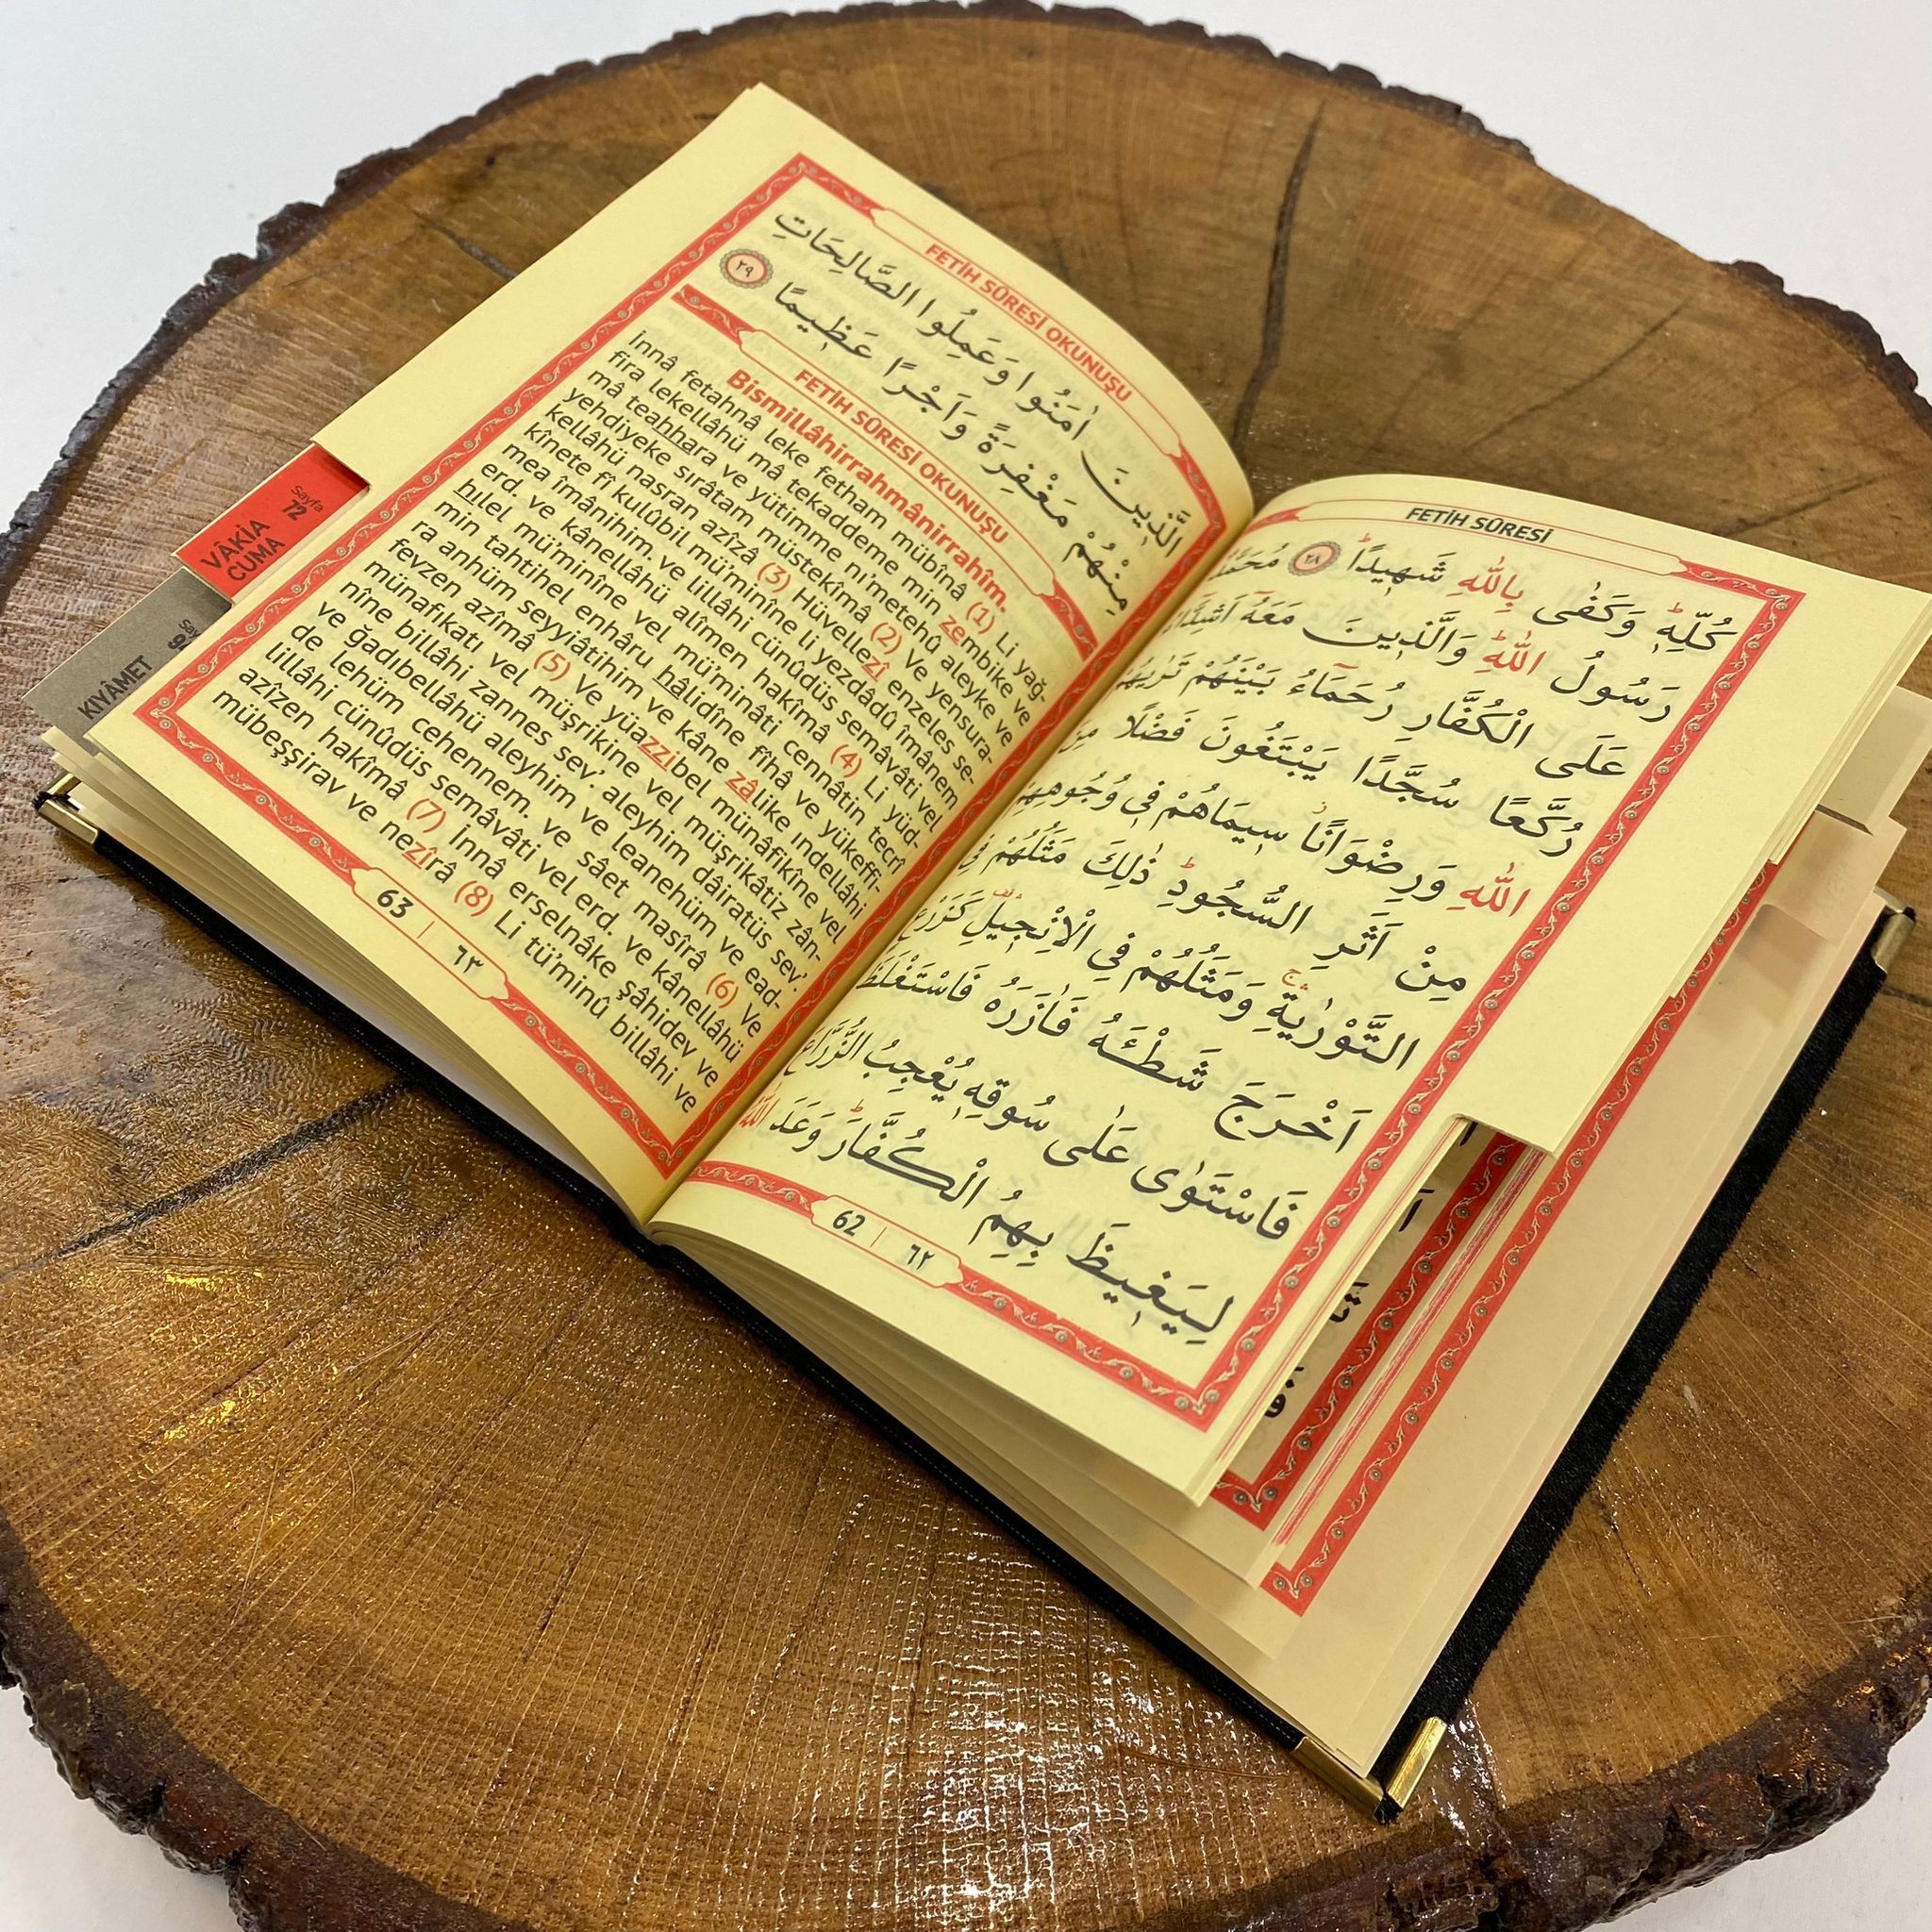 FETİH SÛRESİ
كُلِّهٖۜ وَكَفٰى بِاللّٰهِ شَهٖيدًاۜ ٢٨
رَسُولُ اللّٰهِۜ وَالَّذٖينَ مَعَهُٓ
عَلَى الْكُفَّارِ رُحَمَٓاءُ بَيْنَهُمْ تَرٰيهُمْ
رُكَّعًا سُجَّدًا يَبْتَغُونَ فَضْلًا مِنَ
اللّٰهِ وَرِضْوَانًاۘ سٖيمَاهُمْ فٖى وُجُوهِهِمْ
مِنْ اَثَرِ السُّجُودِۜ ذٰلِكَ مَثَلُهُمْ فِى
التَّوْرٰيةِۚ وَمَثَلُهُمْ فِى الْاِنْجٖيلِ۠ كَزَرْعٍ
اَخْرَجَ شَطْـَٔهُ فَاٰزَرَهُ فَاسْتَغْلَظَ
فَاسْتَوٰى عَلٰى سُوقِهٖ يُعْجِبُ الزُّرَّاعَ
لِيَغٖيظَ بِهِمُ الْكُفَّارَۜ وَعَدَ اللّٰهُ
62 | ٦٢
FETİH SÛRESİ OKUNUŞU
الَّذٖينَ اٰمَنُوا وَعَمِلُوا الصَّالِحَاتِ
مِنْهُمْ مَغْفِرَةً وَاَجْرًا عَظٖيمًا ٢٩
FETİH SÛRESİ OKUNUŞU
Bismillâhirrahmânirrahîm.
İnnâ fetahnâ leke fetham mübînâ (1) Li yağ-
fira lekellâhü mâ tekaddeme min zembike ve
mâ teahhara ve yütimme ni'metehû aleyke ve
yehdiyeke sırâtam müstekîmâ (2) Ve yensura-
kellâhü nasran azîzâ (3) Hüvellezî enzeles se-
kînete fî kulûbil mü'minîne li yezdâdû îmânem
mea îmânihim. ve lillâhi cünûdüs semâvâti vel
erd. ve kânellâhü alîmen hakîmâ (4) Li yüd-
hılel mü'minîne vel mü'minâti cennâtin tecrî
min tahtihel enhâru hâlidîne fîhâ ve yükeffi-
ra anhüm seyyiâtihim ve kâne zâlike indellâhi
fevzen azîmâ (5) Ve yüazzibel münâfikîne vel
münafikati vel müşrikîne vel müşrikâtiz zân-
nîne billâhi zannes sev'. aleyhim dâiratüs sev'.
ve ğadıbellâhü aleyhim ve leanehüm ve ead-
de lehüm cehennem. ve sâet masîrâ (6) Ve
lillâhi cünûdüs semâvâti vel erd. ve kânellâhü
azîzen hakîmâ (7) İnnâ erselnâke şâhidev ve
mübeşşirav ve nezîrâ (8) Li tü'minû billâhi ve
63 | ٦٣
Sayfa
72
VÂKİA
CUMA
KIYÂMET